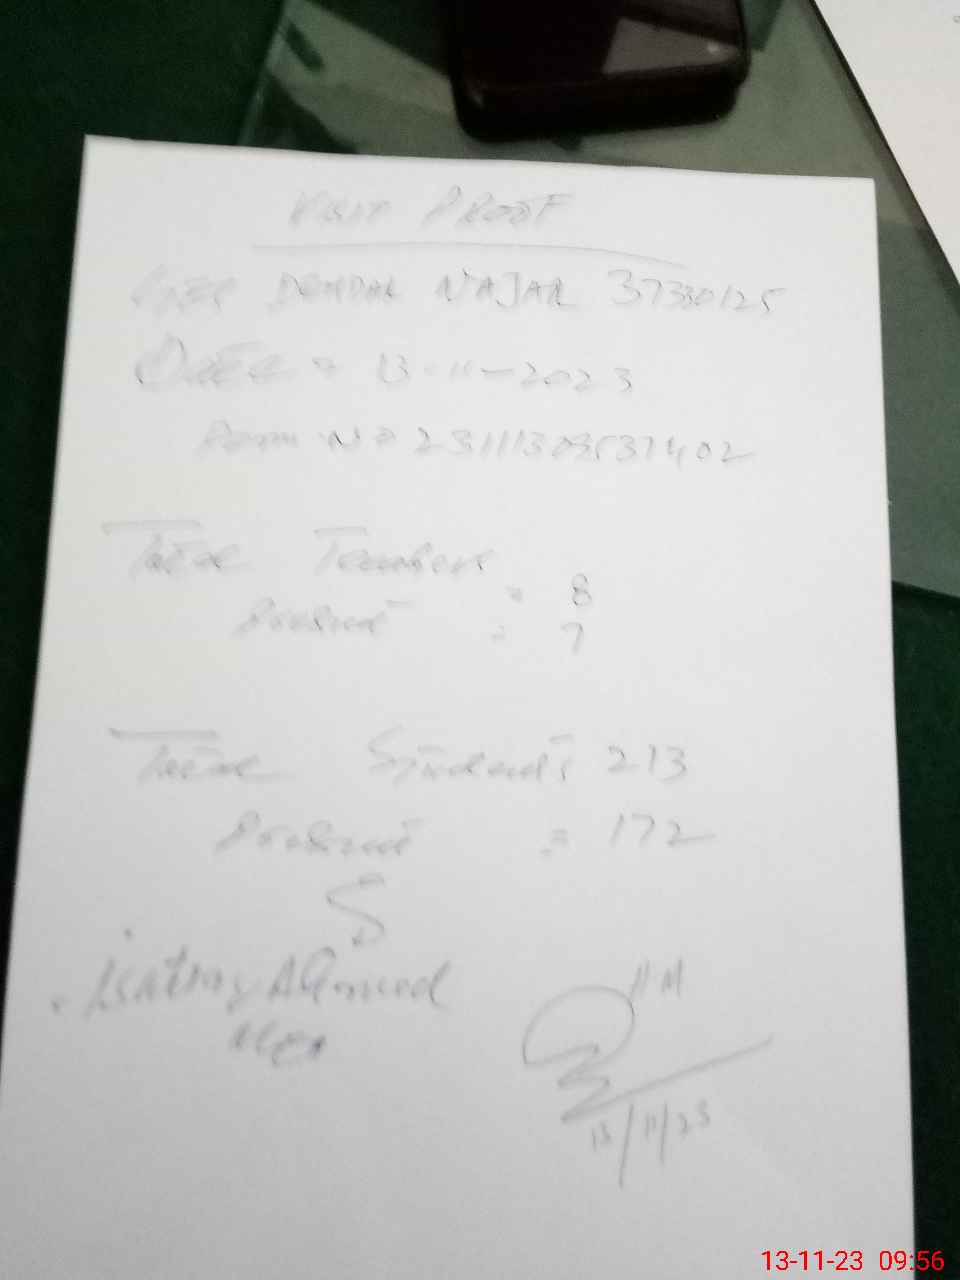 VISIT PROOF
DENDAR NAJAR 37330125
Date = 13-11-2023
Form No 231113095371402
Total Teachers = 8
Present = 7
Total Students 213
Present = 172
Ishtiaq Ahmed
MEA
HM
13/11/23
13-11-23 09:56